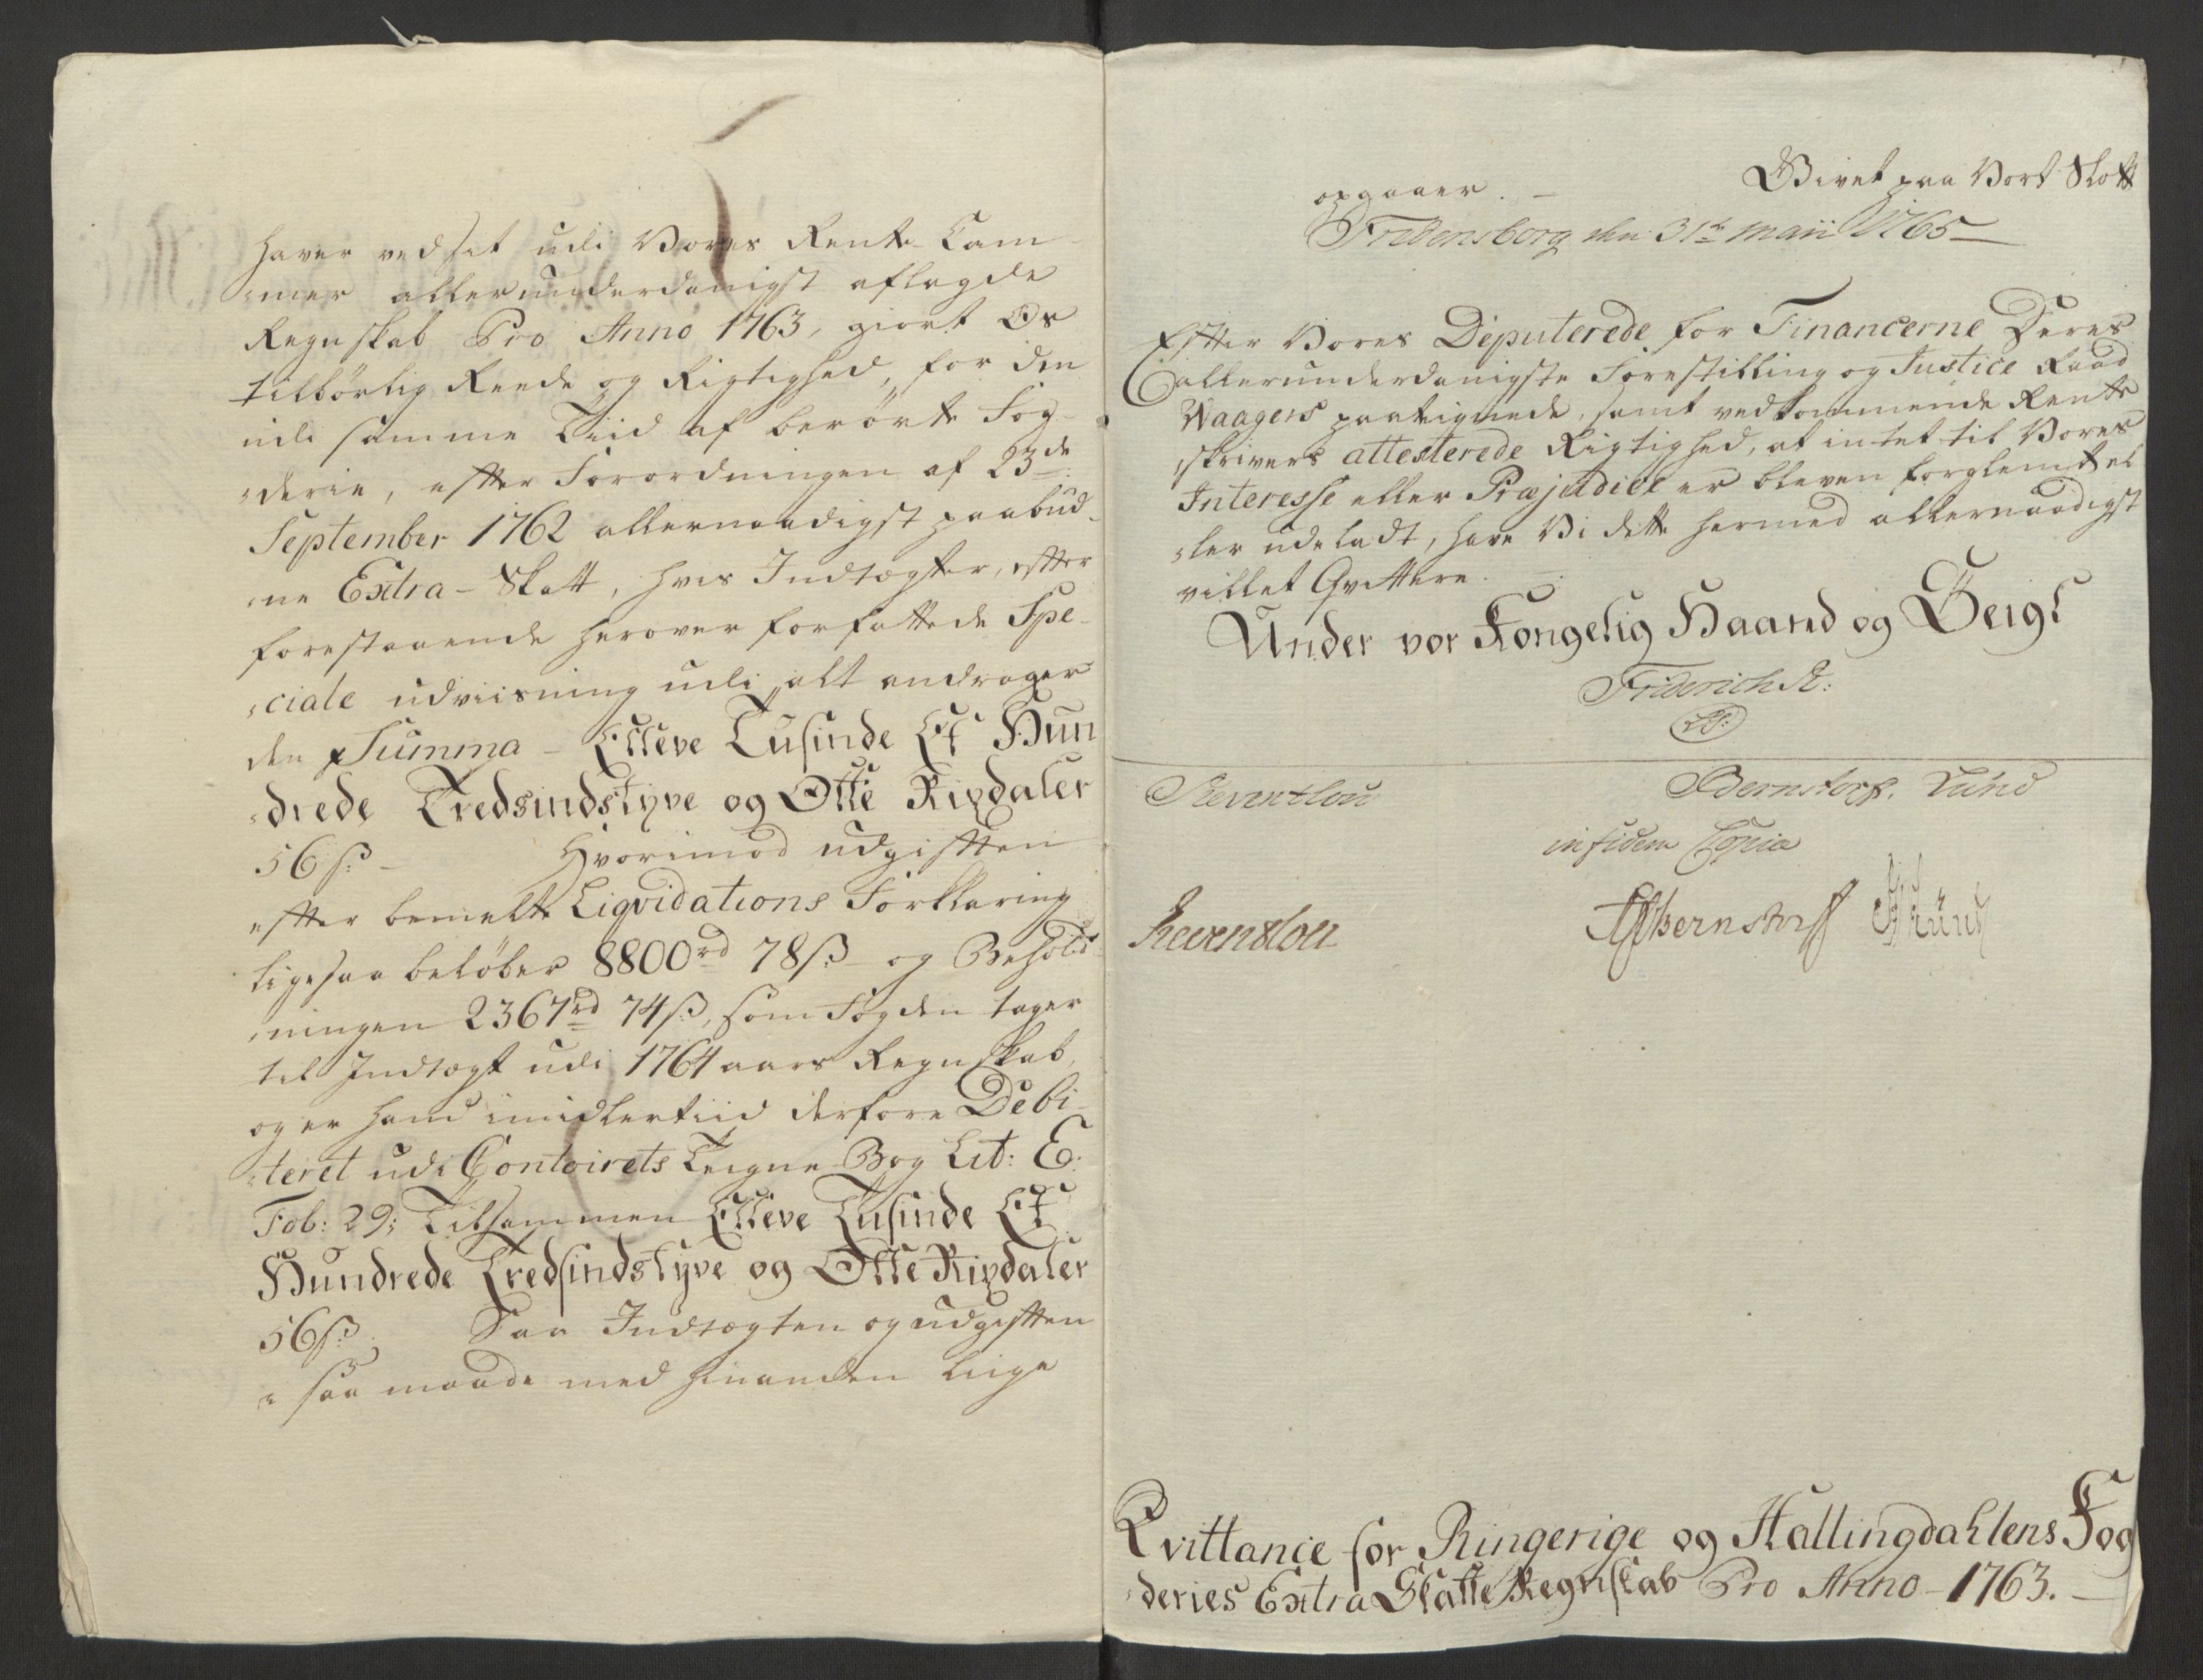 haver ved sit udi Vores Rente-Cam-
mer allerunderdanigst aflagde
Regnskab Pro Anno 1763, giort Os
tilbörlig Reede og Rigtighed, for den
udi samme Tiid af berörte Fog-
derie, efter Forordningen af 23de
September 1762 allernaadigst paabud-
ne Extra-Skatt, hvis Indtægter, efter
forestaaende herover forfattede Spe-
ciale udviisning udi alt andrager
den Summa - Elleve Tusinde Et Hun
drede Tredsindstyve og Otte Rixdaler
56 ß: - Hvorimod udgiften
efter bemelte Liqvidations Forklaring
ligesaa beløber 8800rd 78ß og Behold-
ningen 2367rd 74ß, som Fogden tager
til Indtægt udi 1764 aars Regnskab,
og er hand imidlertiid derfore Debi-
teret udi Contoirets Tegne-Bog Lit: E:
Fol: 29; Tilsammen Elleve Tusinde Et
Hundrede Tredsindstyve og Otte Rixdaler
56ß: Saa Indtægten og udgiften
i saa maade med hinanden liige
opgaaer. - Givet paa Vort Slott
Fredensborg den 31te Maii 1765
Efter Vores Deputerede for Financerne Deres
allerunderdanigste Forestilling og Justice Raad
Waagers paategnede, samt vedkommende Rente
skrivers attesterede Rigtighed, at intet til Vores
Interesse eller Præjudice er bleven forglemt el
ler udeladt, have Vi dette hermed allernaadigst
villet Qvittere.
Under vor Kongelig Haand og Seigl
Friderich R:
LS:
Reventlou Bernstorff. Lund
in fidem Copia
Reventlou Bernstorff Lund
Qvittance for Ringerige og Hallingdahlens Fog
deries Extra Skatte Regnskab Pro Anno 1763.